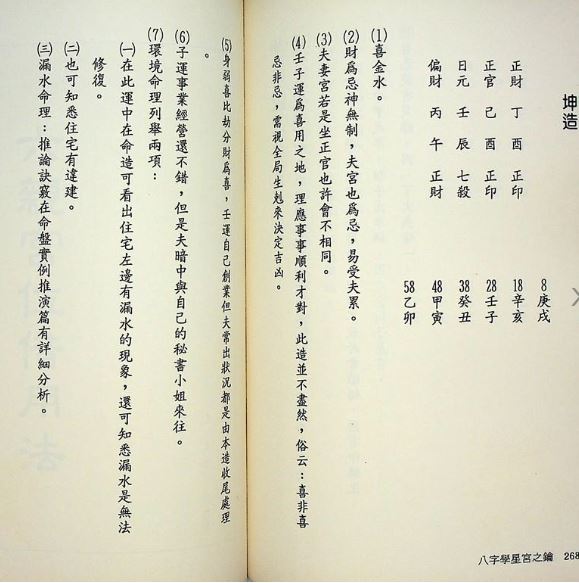 坤造
正財 丁 酉 正印
正官 己 酉 正印
日元 壬 辰 七殺
偏財 丙 午 正財
8庚戌
18辛亥
28壬子
38癸丑
48甲寅
58乙卯
(1)喜金水。
(2)財爲忌神無制，夫宮也爲忌，易受夫累。
(3)夫妻宮若是坐正官也許會不相同。
(4)壬子運爲喜用之地，理應事事順利才對，此造並不盡然，俗云：喜非喜
忌非忌，需視全局生剋來決定吉凶。
八字學星宮之鑰 268
(5)身弱喜比劫分財爲喜，壬運自己創業但夫常出狀況都是由本造收尾處理
。
(6)子運事業經營還不錯，但是夫暗中與自己的秘書小姐來往。
(7)環境命理列舉兩項：
㈠在此運中在命造可看出住宅左邊有漏水的現象，還可知悉漏水是無法
修復。
㈡也可知悉住宅有違建。
㈢漏水命理：推論訣竅在命盤實例推演篇有詳細分析。